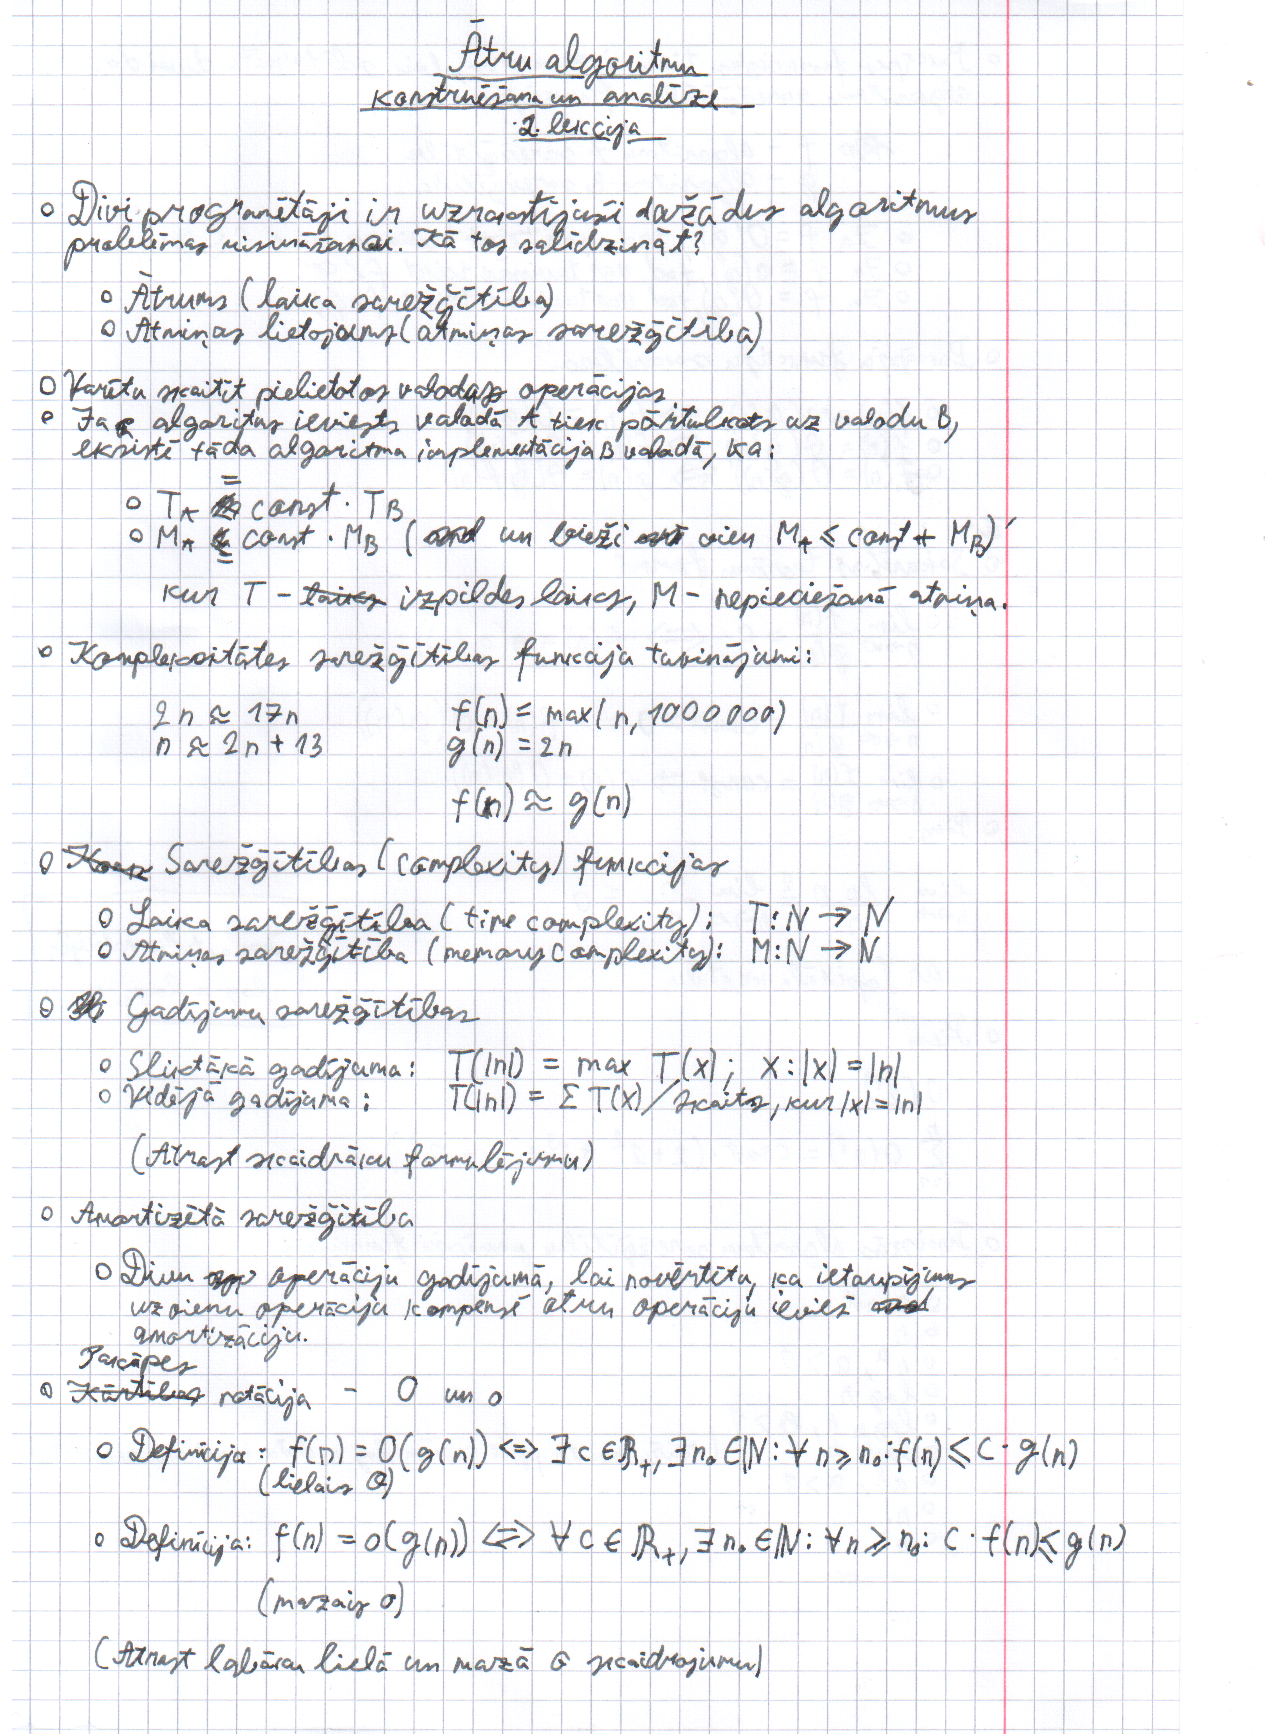 Ātru algoritmu
konstruēšana un analīze
2. lekcija
Divi programētāji ir uzrastījuši dažādus algoritmus
problēmas risināšanai. Kā tos salīdzināt?
Ātrums (laika sarežģītība)
Atmiņas lietojums (atmiņas sarežģītība)
Varētu skaitīt pielietotos valodas operācijas
Ja algoritms ieviests valodā A tiek pārtulkots uz valodu B,
eksistē tāda algoritma implementācija B valodā, ka:
T_A = const · T_B
M_A = const · M_B ( un bieži vien M_A ≤ const + M_B)
kur T - izpildes laiks, M - nepieciešamā atmiņa.
Kompleksitātes sarežģītības funkciju tuvinājumi:
2n ≈ 17n f(n) = max(n, 1000000)
n ≈ 2n + 13 g(n) = 2n
f(n) ≈ g(n)
Sarežģītības (complexity) funkcijas
Laika sarežģītība (time complexity): T:N → N
Atmiņas sarežģītība (memory complexity): M:N → N
Gadījumu sarežģītības
Sliktākā gadījuma: T(|n|) = max T(x); x:|x| = |n|
Vidējā gadījuma: T(|n|) = Σ T(x)/skaits, kur |x| = |n|
(Atrast skaidrāku formulējumu)
Amortizētā sarežģītība
Divu operāciju gadījumā, lai novērtētu, ka ietaupījums
uz vienu operāciju kompensē otru operāciju ievieš
amortizāciju.
Pakāpes
notācija - O un o
Definīcija: f(n) = O(g(n)) <=> ∃ c ∈ ℝ₊, ∃ n₀ ∈ ℕ: ∀ n ≥ n₀: f(n) ≤ c · g(n)
(lielais O)
Definīcija: f(n) = o(g(n)) <=> ∀ c ∈ ℝ₊, ∃ n₀ ∈ ℕ: ∀ n ≥ n₀: c · f(n) ≤ g(n)
(mazais o)
(Atrast labāku lielā un mazā o skaidrojumu)